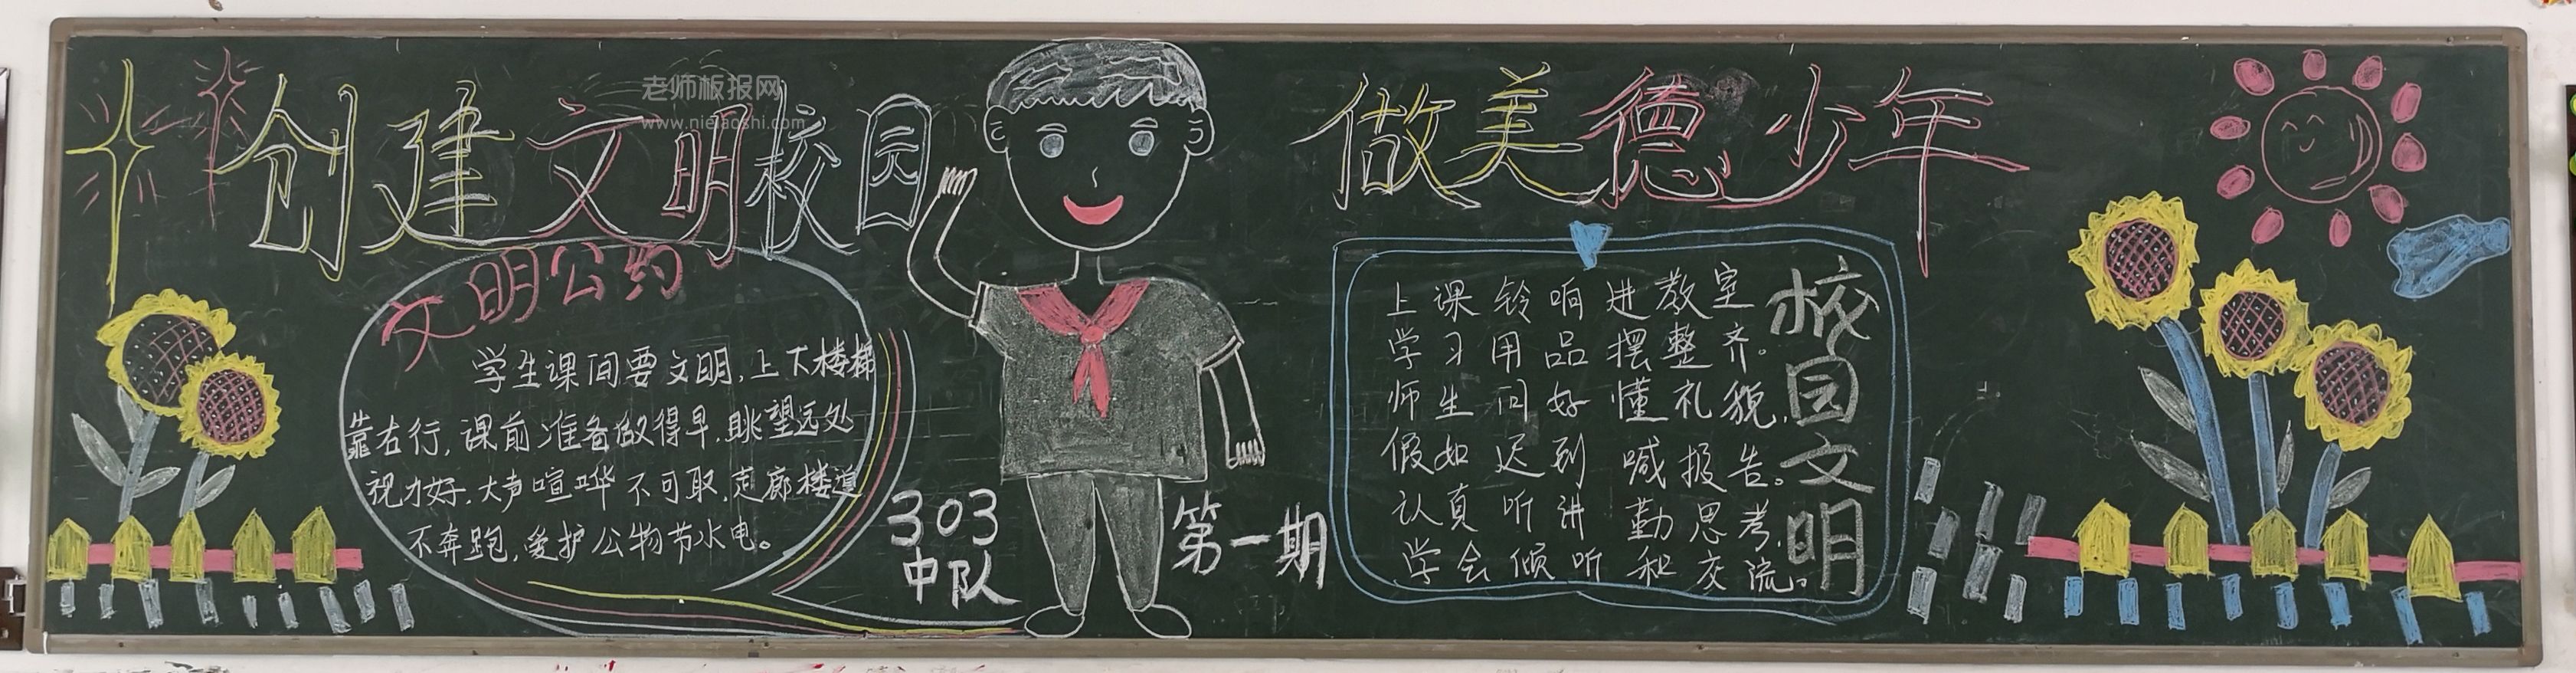 创建文明校园
做美德少年
老师板报网
www.nielaoshi.com
文明公约
学生课间要文明,上下楼梯
靠右行,课前准备做得早,眺望远处
视力好,大声喧哗不可取,走廊楼道
不奔跑,爱护公物节水电。
303
中队
第一期
校园文明
上课铃响进教室
学习用品摆整齐。
师生问好懂礼貌,
假如迟到喊报告。
认真听讲勤思考,
学会倾听和交流。